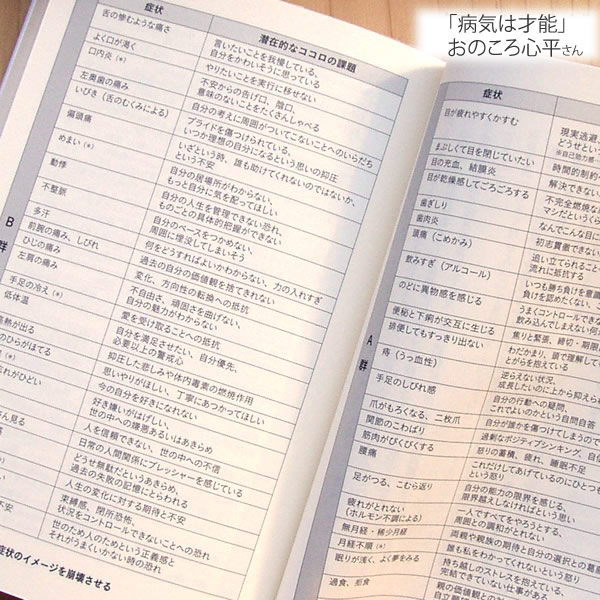 「病気は才能」
おのころ心平さん
症状
潜在的なココロの課題
舌の惨むような痛さ
言いたいことを我慢している、
自分をかわいそうに思っている
よく口が渇く
やりたいことを実行に移せない
口内炎(*)
不安からの告げ口、陰口、
意味のないことをたくさんしゃべる
左奥歯の痛み
自分の考えに周囲がついてこないことへのいらだち
いびき(舌のむくみによる)
プライドを傷つけられている、
いつか理想の自分になるという思いの抑圧
偏頭痛
いざという時、誰も助けてくれないのではないか、
という不安
めまい(*)
自分の居場所がわからない、
もっと自分に気を配ってほしい
動悸
自分の人生を管理できない恐れ、
ものごとの具体的把握ができない
不整脈
自分のペースをつかめない、
周囲に埋没してしまいそう
多汗
何をどうすればよいかわからない、力の入れすぎ
前腕の痛み、しびれ
過去の自分の価値観を捨てきれない
ひじの痛み
変化、方向性の転換への抵抗
左肩の痛み
不自由さ、頑固さを曲げない、
自分の魅力がわからない
手足の冷え(*)
愛を受け取ることへの抵抗
低体温
自分を満足させたい、自分優先、
必要以上の警戒心
高熱が出る
抑圧した悲しみや体内毒素の燃焼作用
のひらがほてる
思いやりがほしい、丁寧にあつかってほしい
(*)
今の自分を好きになれない
忘れがひどい
好き嫌いがはげしい、
世の中への嫌悪あるいはあきらめ
人を信頼できない、世の中への不信
ん見る
日常の人間関係にプレッシャーを感じている
どうせ無駄だというあきらめ、
過去の失敗の記憶にとらわれる
人生の変化に対する期待と不安
束縛感、閉所恐怖、
状況をコントロールできないことへの恐れ
世のため人のためという正義感と
それがうまくいかない時の恐れ
B群
症状のイメージを崩壊させる
症状
目が疲れやすくかすむ
現実逃避
どうせという
まぶしくて目を閉じていたい
時間的制約
目の充血、結膜炎
解決できない
目が乾燥感してごろごろする
不完全燃焼な
マシだというくら
歯ぎしり
なんでこんな目に
歯肉炎
初志貫徹できない
頭痛(こめかみ)
追い立てられること
流れに抵抗する
飲みすぎ(アルコール)
いつも勝ち負けを意識
負けを認めたくない、
のどに異物感を感じる
うまくコントロールできな
飲み込んでしまえない何か
便秘と下痢が交互に生じる
焦りと緊張、締切・期限
排便してもすっきり出ない
わだかまり、頭で理解して
とがらを抱えている
痔(うっ血性)
逆らえない状況、
成長したいのに上から抑えられ
手足のしびれ感
自分の行動への疑問、
これでよいのかという自問自答
爪がもろくなる、二枚爪
自分が誰かを傷つけてしまうので
関節のこわばり
過剰なポジティブシンキング、自信
筋肉がぴくぴくする
怒りの蓄積、疲れ、睡眠不足
腰痛
これだけしてあげているのにひとつも
足がつる、こむら返り
自分の能力の限界を感じる、
限界越えしなければという思い
疲れがとれない
(ホルモン不調による)
一人ですべてをやろうとする、
周囲との調和がとれない
無月経・稀少月経
両親や親族の期待と自分の選択との葛藤
月経不順(*)
誰も私をわかってくれないという怒り
眠りが浅く、よく夢をみる
持ち越しのストレスを抱えている、
完結できていない仕事がある
過食、拒食
親の価値観との
A群